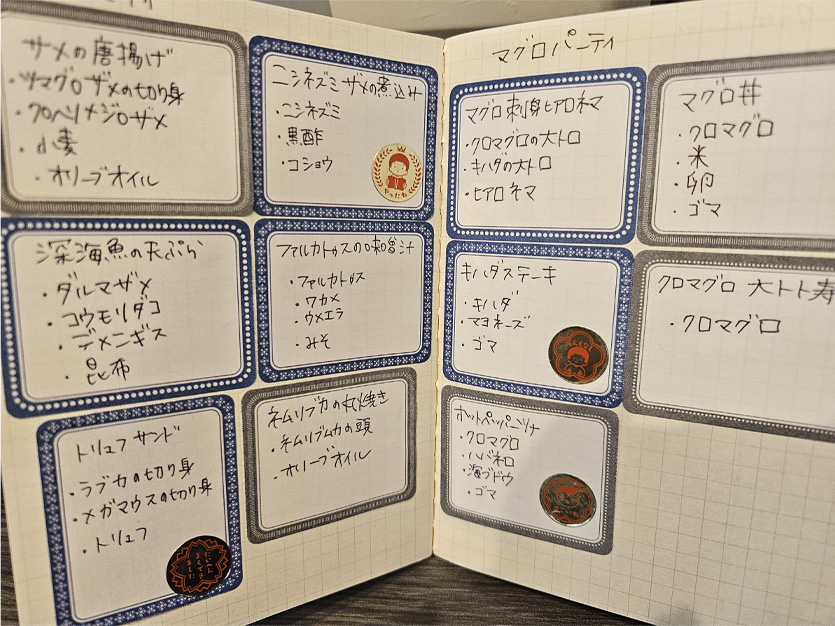 サメの唐揚げ
・ツマグロザメの切り身
・クロヘリメジロザメ
・小麦
・オリーブオイル
ニシネズミザメの煮込み
・ニシネズミ
・黒酢
・コショウ
やったね
深海魚の天ぷら
・ダルマザメ
・コウモリダコ
・デメンギス
・昆布
ファルカトゥスの味噌汁
・ファルカトゥス
・ワカメ
・ウメエラ
・みそ
トリュフサンド
・ラブカの切り身
・メガマウスの切り身
・トリュフ
たいへん
よくでき
ました
ネムリブカの丸焼き
・ネムリブムカの頭
・オリーブオイル
マグロパーティ
マグロ刺身ヒアロネマ
・クロマグロの大トロ
・キハダの大トロ
・ヒアロネマ
マグロ丼
・クロマグロ
・米
・卵
・ゴマ
キハダステーキ
・キハダ
・マヨネーズ
・ゴマ
クロマグロ 大トト寿
・クロマグロ
ホットペッパーツナ
・クロマグロ
・ハバネロ
・海ブドウ
・ゴマ